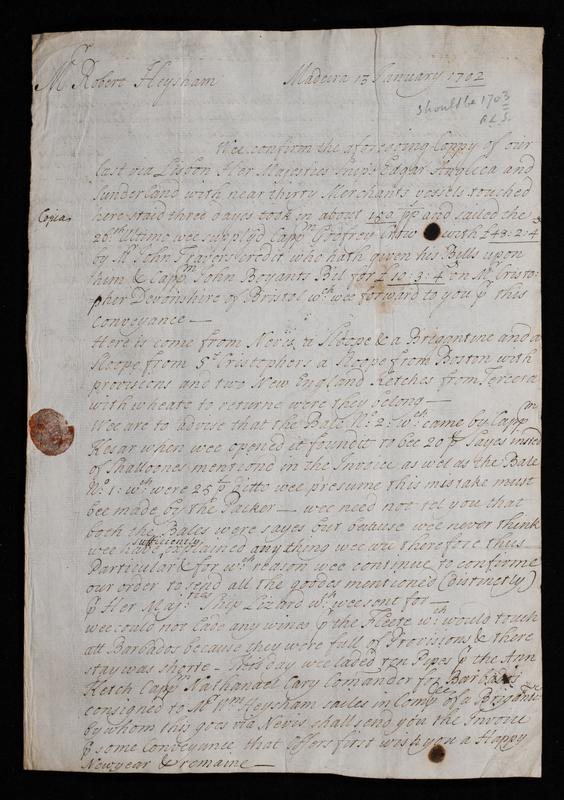 Mr Robert Heysham Madeira 13 January 1702
should be 1703
A L S.
Wee confirm the aforegoing Coppy of our
last via Lisbon Her Majesties Ships Eagar Anglcea and
Sunderland with near thirty Merchants vessels touched
Copia
here staid three dayes took in about 150 pp and sailed the
20th Ultimo wee supplyd Cappm Godfrey with £48:2:4
by Mr John Travers credit who hath given his Bills upon
them & Cappm John Boyants Bil for £10:3:4 on Mr Cristo:
pher Devonshire of Bristol wch wee forward to you p this
Conveyance —
Here is come from Nevis a Sloope & a Brigantine and a
Sloope from St Cristophers a Sloope from Boston with
provisions and two New England Ketches from Tercera
with wheate to returne were they belong —
Wee are to advise that the Bale No 2: wch came by Cappm
Kesar when wee opened it founde it to bee 20 ps Sayes insted
of Shalloones mentiond in the Invoice as wel as the Bale
No 1: wch were 25 ps Ditto wee presume this mistake must
bee made by the Packer — wee need not tel you that
both the Bales were sayes but because wee never think
sufficiently
wee have explained anything wee are therefore thus
Particular & for wch reason wee continue to conforme
our order to send all the goodes mentioned (distinctly)
p Her Majties Ship Lizard wch wee sent for —
wee could not Lade any wines p the Fleete wch would touch
att Barbados because they were full of Provisions & there
stay was shorte — This day wee laded ten Pipes p the Ann
Ketch Cappm Nathanael Cary Comander for Barbados
consigned to Mr Wm Heysham sailes in Compy of a Brigantne
by whom this goes via Nevis shall send you the Invoice
p some Conveyance that offers first wish you a Happy
Newyear & remaine —